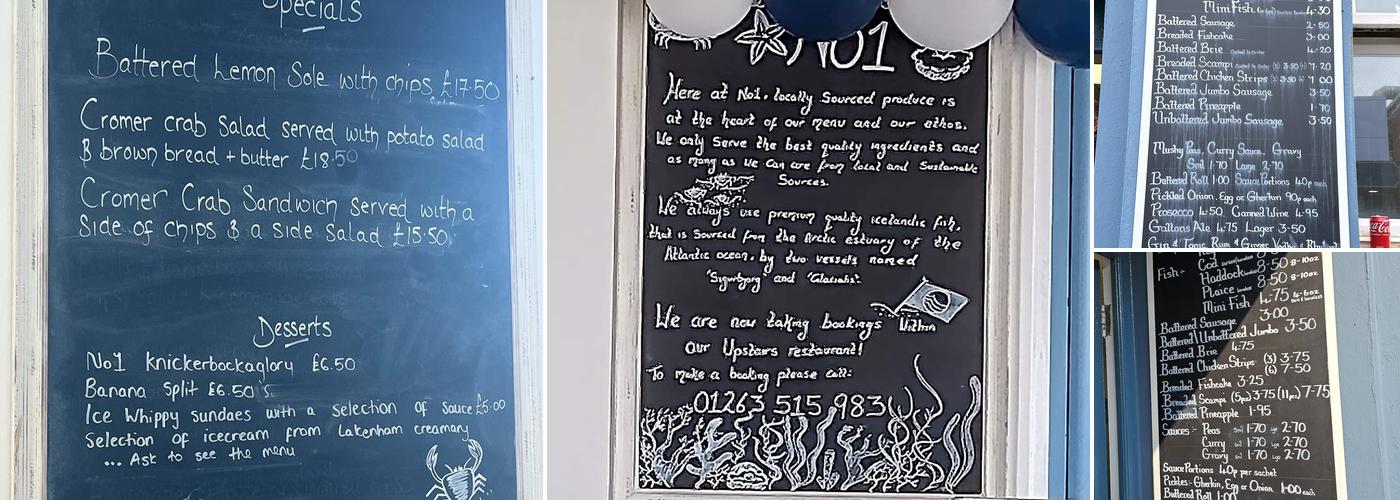 Specials
Battered Lemon Sole with chips £17.50
Cromer crab Salad served with potato salad
& brown bread + butter £18.50
Cromer Crab Sandwich served with a
Side of chips & a side Salad £15.50
Desserts
No1 knickerbockaglory £6.50
Banana Split £6.50
Ice Whippy sundaes with a selection of sauce £5.00
Selection of icecream from Lakenham creamary
... Ask to see the menu
No1
Here at No1, locally Sourced produce is
at the heart of our menu and our ethos.
We only serve the best quality ingredients and
as many as we can are from local and Sustainable
Sources.
We always use premium quality icelandic fish,
that is sourced from the Arctic estuary of the
Atlantic ocean, by two vessels named
"Sigurbjorg and
We are now taking bookings Within
Our Upstairs restaurant!
To make a booking please call:-
01263 515 983
Mini Fish 4.30
Battered Sausage 2.50
Breaded Fishcake 3.00
Battered Brie Cooked to Order 4.20
Breaded Scampi Cooked to Order (5) 3.50 7.20
Battered Chicken Strips (3) 3.50 7.00
Battered Jumbo Sausage 3.50
Battered Pineapple 1.70
Unbattered Jumbo Sausage 3.50
Mushy Peas, Curry Sauce, Gravy
Small 1.70 Large 2.70
Battered Roll 1.00 Sauce Portions 40p each
Pickled Onion, Egg or Gherkin 90p each
Prosecco 4.50 Canned Wine 4.95
Galtons Ale 4.75 Lager 3.50
Gin & Tonic, Rum & Ginger, Vodka &
Fish:- Cod 8.50 8-10oz
Haddock 8.50 8-10oz
Plaice 8.50 8-10oz
Mini Fish 4.75 4-6oz
Battered Sausage 3.00
Battered/Unbattered Jumbo 3.50
Battered Brie 4.75
Battered Chicken Strips (3) 3.75
(6) 7.50
Breaded Fishcake 3.25
Breaded Scampi (5pcs) 3.75 (11pcs) 7.75
Battered Pineapple 1.95
Sauces:- Peas sml 1.70 lge 2.70
Curry sml 1.70 lge 2.70
Gravy sml 1.70 lge 2.70
Sauce Portions 40p per sachet
Pickles:- Gherkin, Egg or Onion 1.00 each
Buttered Roll 1.00